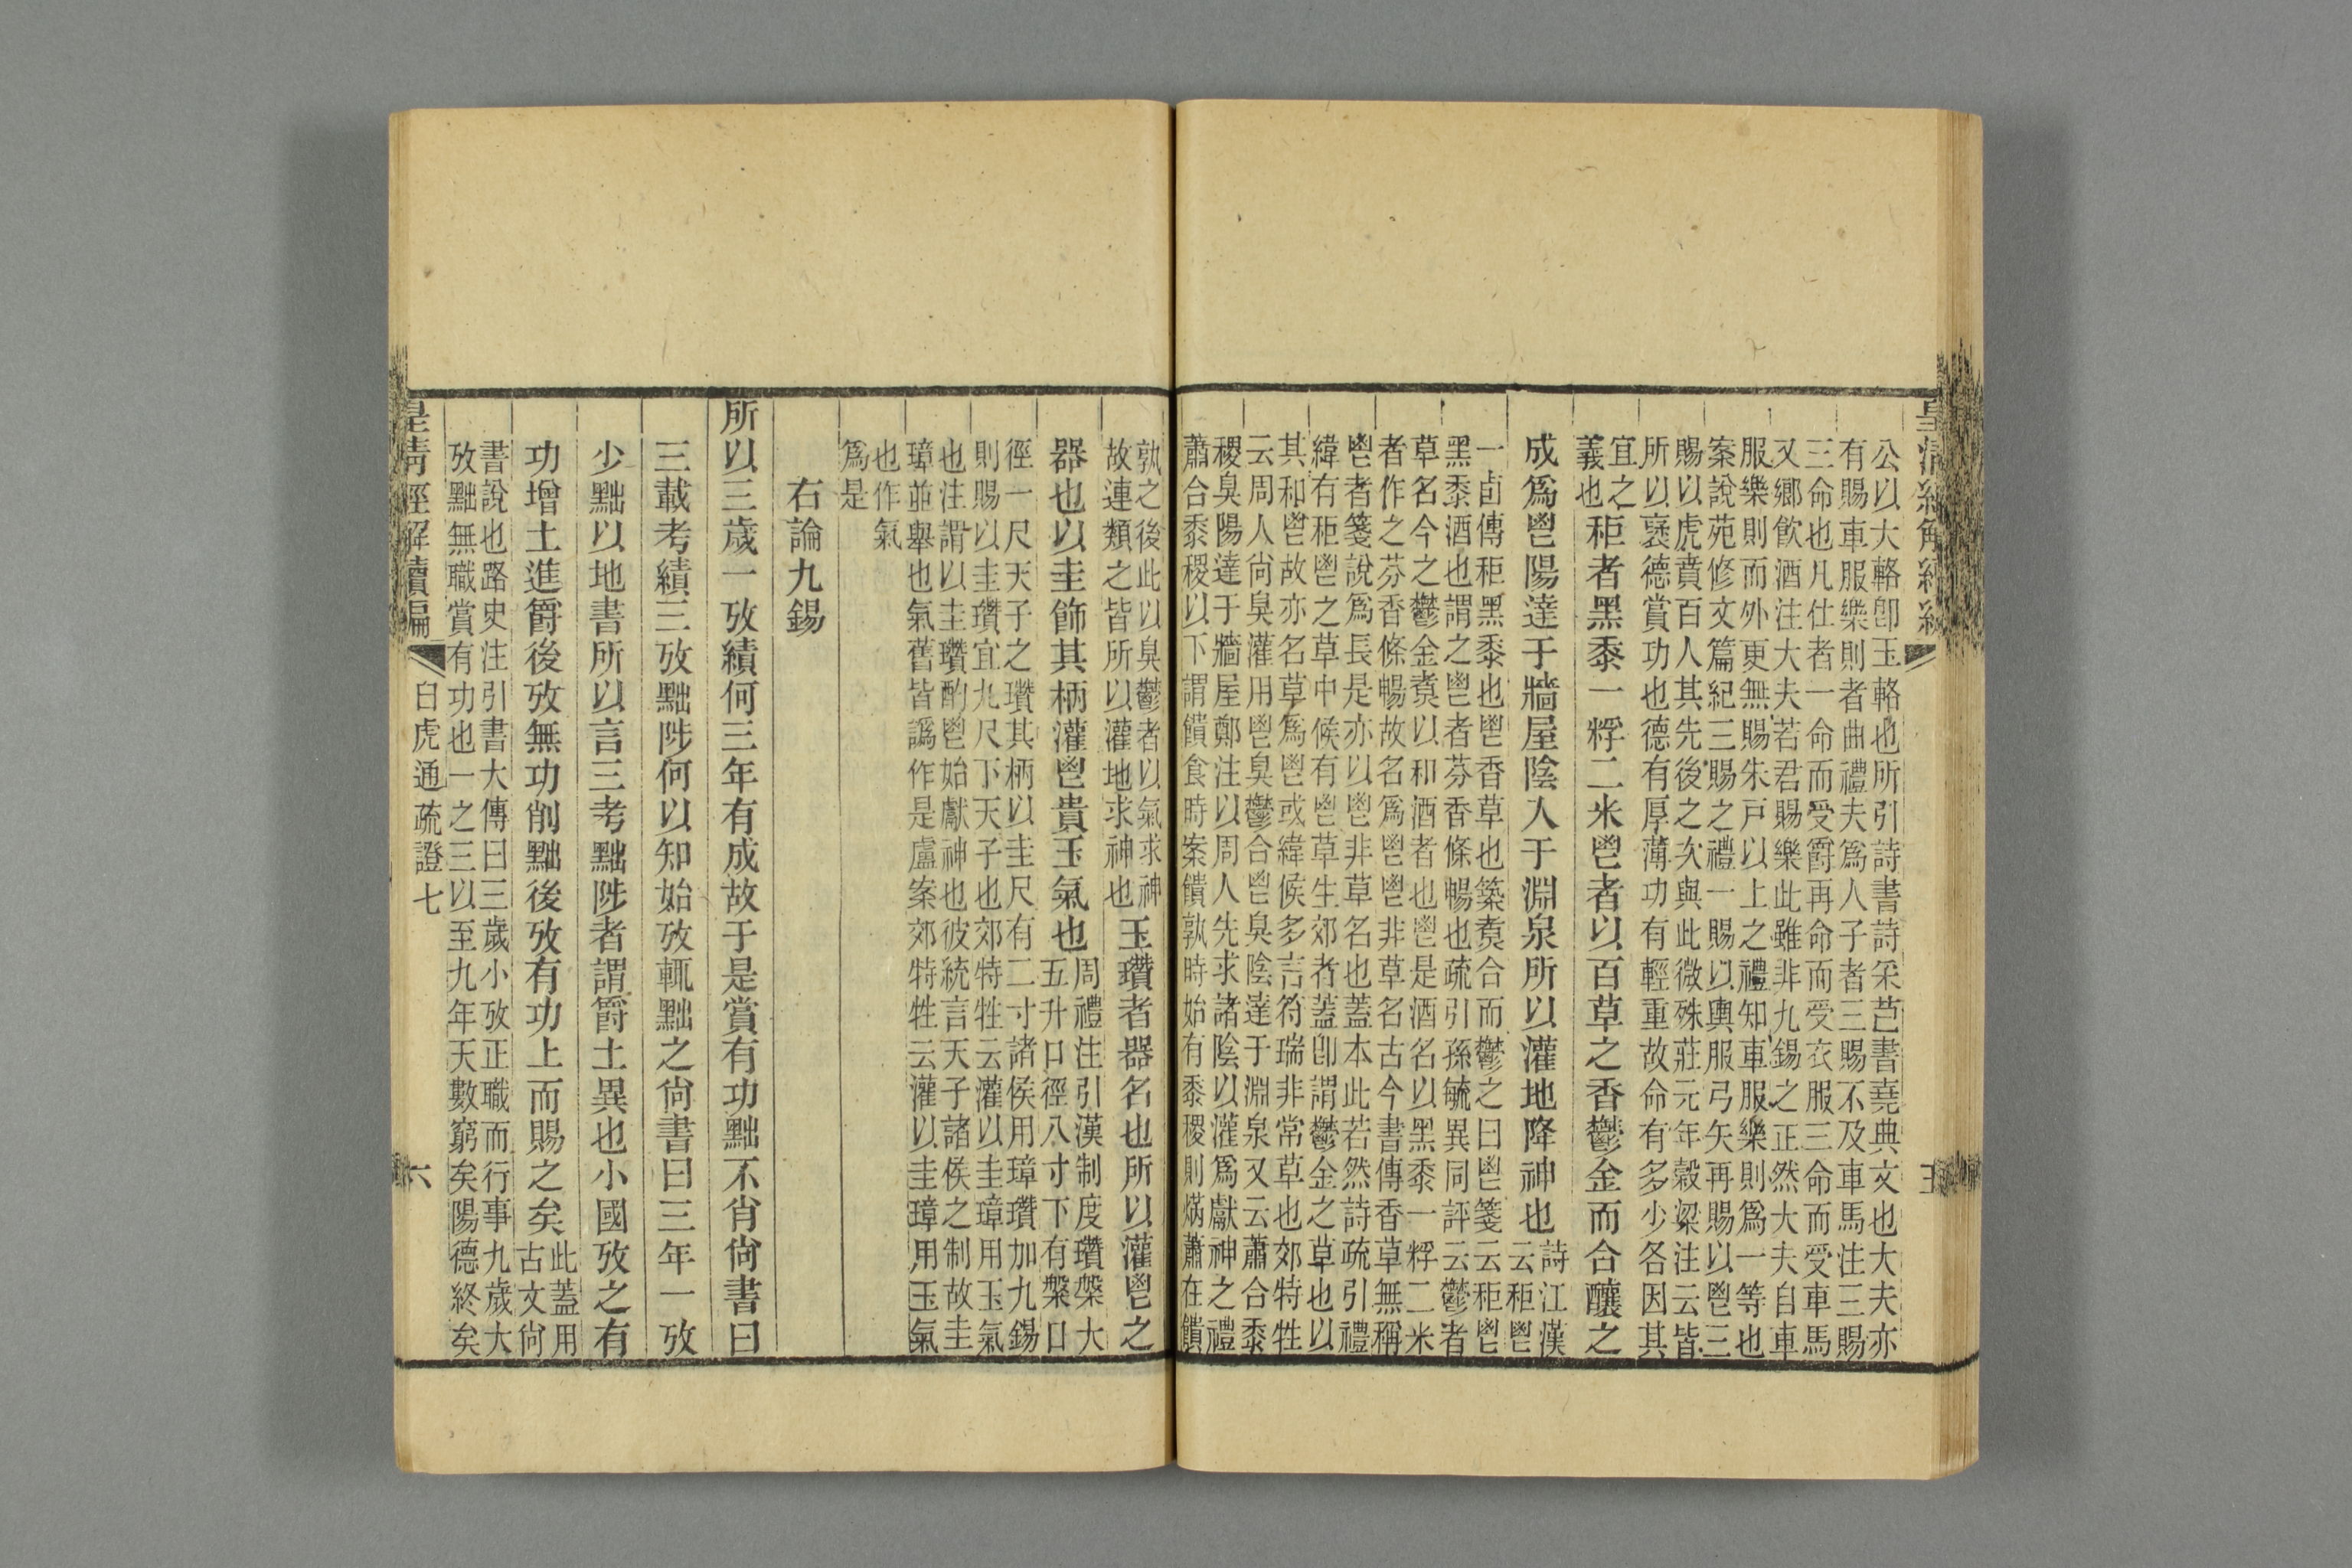 皇清經解續編
公以大輅卽玉輅也所引詩書詩采芑書堯典文也大夫亦
有賜車服樂則者曲禮夫爲人子者三賜不及車馬注三賜
三命也凡仕者一命而受爵再命而受衣服三命而受車馬
又鄉飲酒注大夫若君賜樂此雖非九錫之正然大夫自車
服樂則而外更無賜朱戸以上之禮知車服樂則爲一等也
案說苑修文篇紀三賜之禮一賜以輿服弓矢再賜以鬯三
賜以虎賁百人其先後之次與此微殊莊元年穀梁注云皆
所以襃德賞功也德有厚薄功有輕重故命有多少各因其
宜之
義也
秬者黑黍一稃二米鬯者以百草之香鬱金而合釀之
成爲鬯陽達于牆屋陰入于淵泉所以灌地降神也
詩江漢
云秬鬯
一卣傳秬黑黍也鬯香草也築煑合而鬱之曰鬯箋云秬鬯
黑黍酒也謂之鬯者芬香條暢也疏引孫毓異同評云鬱者
草名今之鬱金煑以和酒者也鬯是酒名以黑黍一稃二米
者作之芬香條暢故名爲鬯鬯非草名古今書傳香草無稱
鬯者箋說爲長是亦以鬯非草名也蓋本此若然詩疏引禮
緯有秬鬯之草中候有鬯草生郊者蓋卽謂鬱金之草也以
其和鬯故亦名草爲鬯或緯候多言符瑞非常草也郊特牲
云周人尙臭灌用鬯臭鬱合鬯臭陰達于淵泉又云蕭合黍
稷臭陽達于牆屋鄭注以周人先求諸陰以灌爲獻神之禮
蕭合黍稷以下謂饋食時案饋孰時始有黍稷則焫蕭在饋
孰之後此以臭鬱者以氣求神
故連類之皆所以灌地求神也
玉瓚者器名也所以灌鬯之
器也以圭飾其柄灌鬯貴玉氣也
周禮注引漢制度瓚槃大
五升口徑八寸下有槃口
徑一尺天子之瓚其柄以圭尺有二寸諸侯用璋瓚加九錫
則賜以圭瓚宜九尺下天子也郊特牲云灌以圭璋用玉氣
也注謂以圭瓚酌鬯始獻神也彼統言天子諸侯之制故圭
璋並舉也氣舊皆譌作是盧案郊特牲云灌以圭璋用玉氣
也作氣
爲是
右論九錫
所以三歲一攷績何三年有成故于是賞有功黜不肖尙書曰
三載考績三攷黜陟何以知始攷輒黜之尙書曰三年一攷
少黜以地書所以言三考黜陟者謂爵土異也小國攷之有
功增土進爵後攷無功削黜後攷有功上而賜之矣
此蓋用
古文尙
書說也路史注引書大傳曰三歲小攷正職而行事九歲大
攷黜無職賞有功也一之三以至九年天數窮矣陽德終矣
皇清經解續編
白虎通疏證七
六